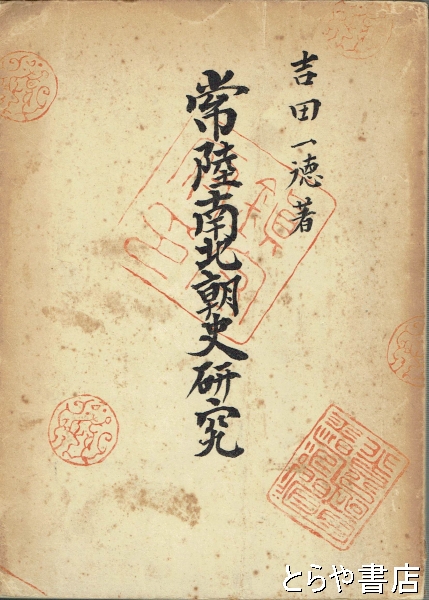 吉田一徳著
常陸南北朝史研究
とらや書店